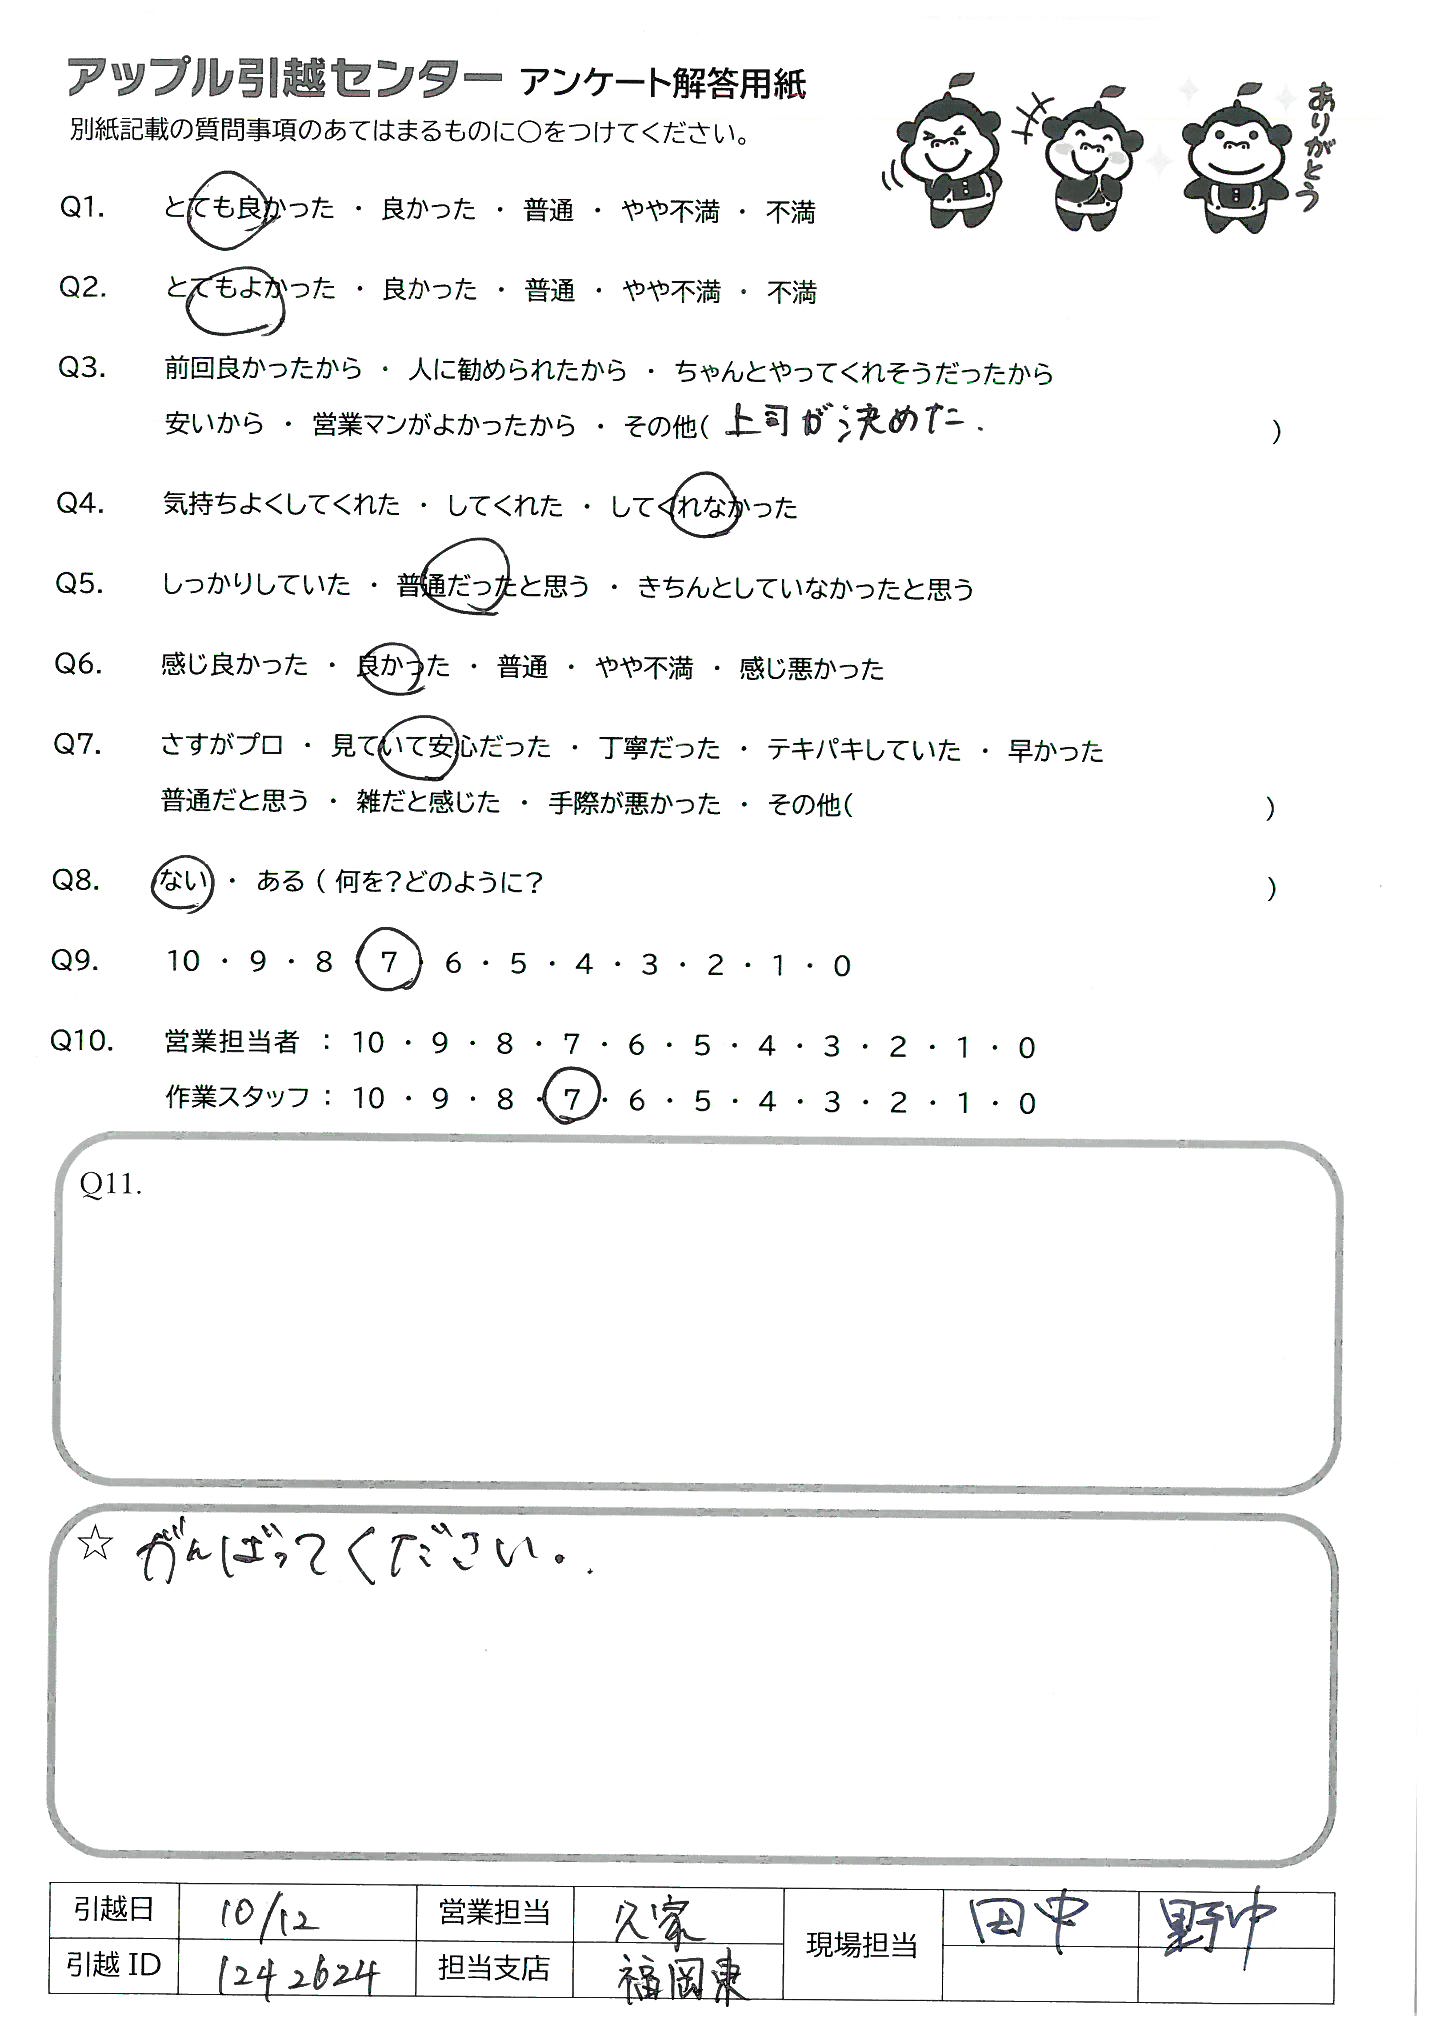 アップル引越センター アンケート解答用紙
別紙記載の質問事項のあてはまるものに○をつけてください。
ありがとう
Q1. とても良かった ・ 良かった ・ 普通 ・ やや不満 ・ 不満
Q2. とてもよかった ・ 良かった ・ 普通 ・ やや不満 ・ 不満
Q3. 前回良かったから ・ 人に勧められたから ・ ちゃんとやってくれそうだったから
安いから ・ 営業マンがよかったから ・ その他( 上司が決めた. )
Q4. 気持ちよくしてくれた ・ してくれた ・ してくれなかった
Q5. しっかりしていた ・ 普通だったと思う ・ きちんとしていなかったと思う
Q6. 感じ良かった ・ 良かった ・ 普通 ・ やや不満 ・ 感じ悪かった
Q7. さすがプロ ・ 見ていて安心だった ・ 丁寧だった ・ テキパキしていた ・ 早かった
普通だと思う ・ 雑だと感じた ・ 手際が悪かった ・ その他( )
Q8. ない ・ ある ( 何を?どのように? )
Q9. 10 ・ 9 ・ 8 ・ 7 ・ 6 ・ 5 ・ 4 ・ 3 ・ 2 ・ 1 ・ 0
Q10. 営業担当者 : 10 ・ 9 ・ 8 ・ 7 ・ 6 ・ 5 ・ 4 ・ 3 ・ 2 ・ 1 ・ 0
作業スタッフ : 10 ・ 9 ・ 8 ・ 7 ・ 6 ・ 5 ・ 4 ・ 3 ・ 2 ・ 1 ・ 0
Q11.
☆ がんばってください.
引越日 10/12 営業担当 久家 現場担当 田中 野中
引越 ID 1242624 担当支店 福岡東